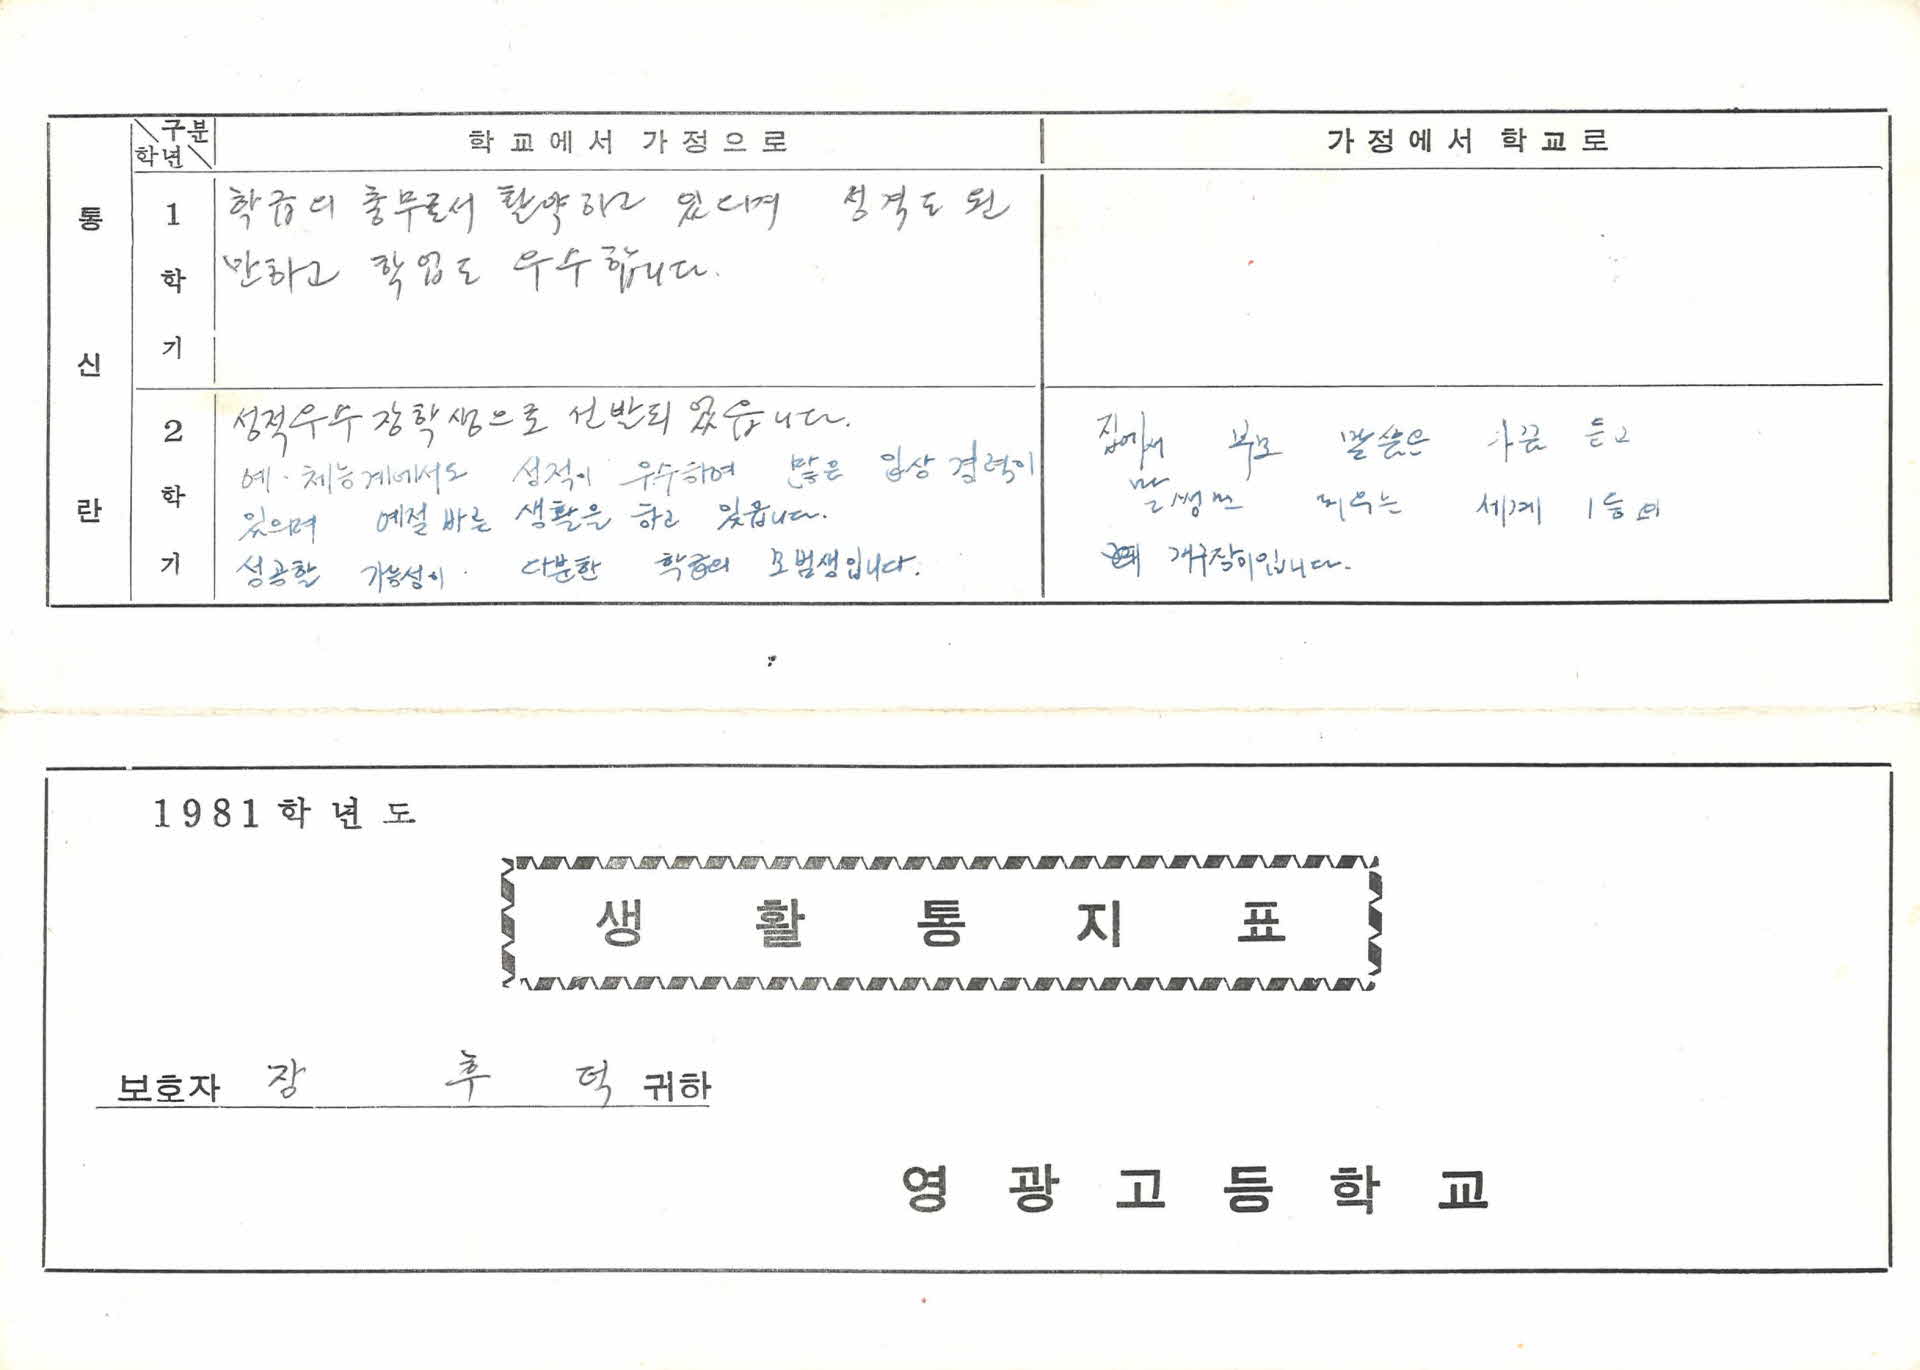 통신란
구분
학년
학교에서 가정으로
가정에서 학교로
1학기
학급의 총무로서 활약하고 있으며 성격도 원
만하고 학업도 우수합니다.
2학기
성적우수 장학생으로 선발되었읍니다.
예·체능계에서도 성적이 우수하여 많은 입상 경력이
있으며 예절 바른 생활을 하고 있읍니다.
성공할 가능성이 다분한 학급의 모범생입니다.
집에서 부모 말씀은 가끔 듣고
말썽만 피우는 세계 1등의
개구장이입니다.
1981학년도
생활통지표
보호자 장후덕 귀하
영광고등학교